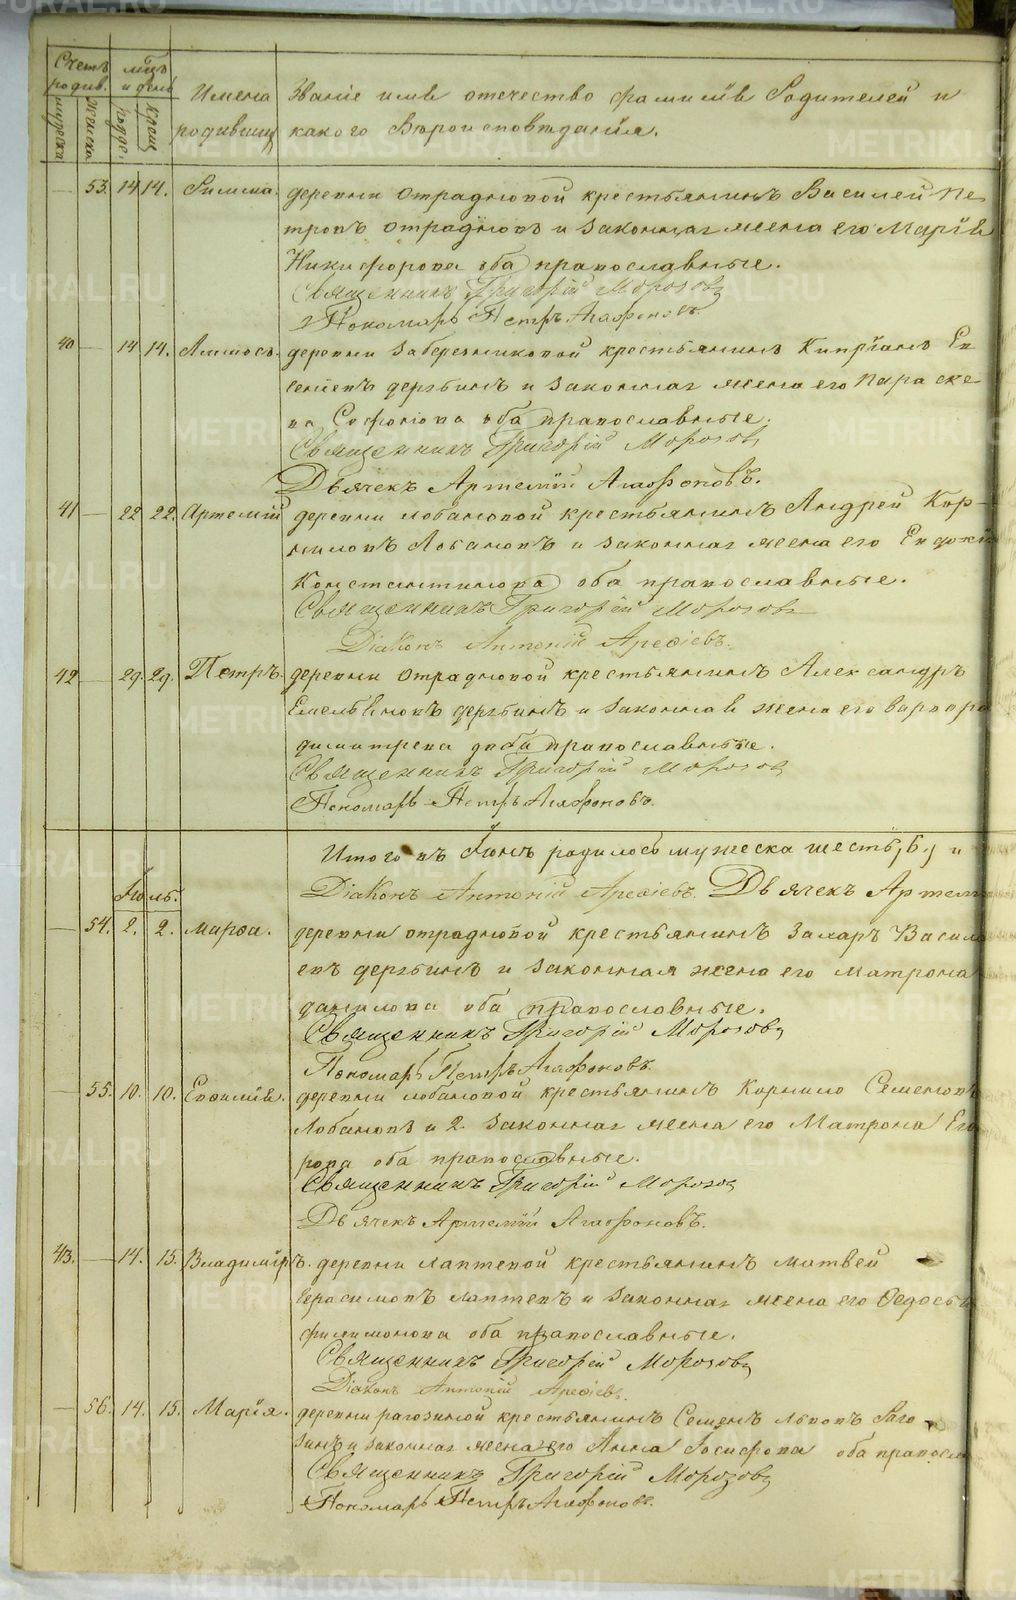 Счетъ родив.
мцъ и день
Имена родивших
Званіе имя отечество фамилія Родителей и
какого Вѣроисповѣданія.
мужеска
Женска
рожде.
Крещ
53. 14 14. Римма. деревни Отрадновой крестьянинъ Василей Пе-
тровъ Отрадновъ и законная жена его Марія
Никифорова оба православные.
Священникъ Григорій Морозовъ
Пономарь Петръ Агафоновъ.
40 14 14. Аммосъ. деревни Заберезниковой крестьянинъ Кипріянъ Ев
сеніевъ дерябинъ и законная жена его Параске
ва Софонова оба православные.
Священникъ Григорій Морозовъ
Дьячекъ Артемій Агафоновъ.
41 22 22. Артемій деревни лобановой крестьянинъ Андрей Кор-
ниловъ Лобановъ и законная жена его Евдокія
Константинова оба православные.
Священникъ Григорій Морозовъ
Діаконъ Антоній Арефіевъ.
42 29. 29. Петръ. деревни Отрадновой крестьянинъ Александръ
Емельяновъ дерябинъ и законная жена его варвара
димитрева оба православные.
Священникъ Григорій Морозов
Пономарь Петръ Агафоновъ.
Итого въ Іюнѣ родилось мужеска шесть, 6, и
Діаконъ Антоній Арефіевъ. Дьячекъ Артемі
Іюль.
54. 2. 2. марѳа. деревни отрадновой крестьянинъ Захаръ Василь
евъ дерябинъ и законная жена его матрона
данилова оба православные.
Священникъ Григорій Морозовъ
Пономарь Петръ Агафоновъ.
55. 10. 10. Евѳимія. деревни лобановой крестьянинъ Корнило Семеновъ
Лобановъ и 2. законная жена его Матрона Его
рова оба православные.
Священникъ Григорій Морозов
Дьячекъ Артемій Агафоновъ.
43. 14. 15. Владиміръ. деревни лаптевой крестьянинъ матвей
Герасимовъ лаптевъ и законная жена его Ѳедосья
филимонова оба православные.
Священникъ Григорій Морозовъ
Діаконъ Антоній Арефіевъ.
56. 14. 15. Марія. деревни рагозиной крестьянинъ Семенъ львовъ Раго
зинъ и законная жена его Анна Іосифова оба правосла
Священникъ Григорій Морозовъ
Пономарь Петръ Агафоновъ.
METRIKI.GASO-URAL.RU